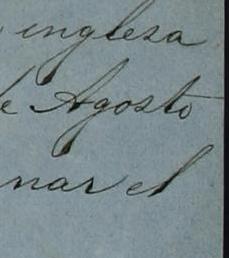 inglesa
de Agosto
nar el